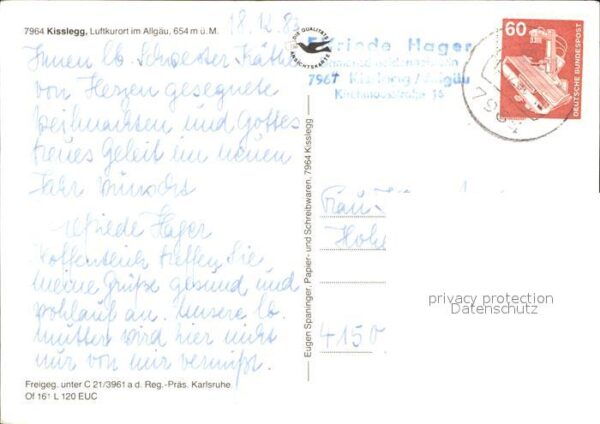 7964 Kisslegg, Luftkurort im Allgäu, 654 m ü.M.
18.12.83
Ihnen lb. Schwester Käthe
von Herzen gesegnete
Weihnachten und Gottes
treues Geleit im neuen
Jahr wünscht
Elfriede Hager
Hoffentlich treffen Sie
meine Grüße gesund und
wohlauf an. Unsere lb.
Mutter wird hier nicht
nur von mir vermißt.
Freigeg. unter C 21/3961 a d. Reg.-Präs. Karlsruhe
Of 161 L 120 EUC
QUALITÄTS
ANSICHTSKARTE
Eugen Spaninger, Papier- und Schreibwaren, 7964 Kisslegg
Elfriede Hager
7967 Kisslegg/Allgäu
60
DEUTSCHE BUNDESPOST
Frau
Hohe
4150
privacy protection
Datenschutz